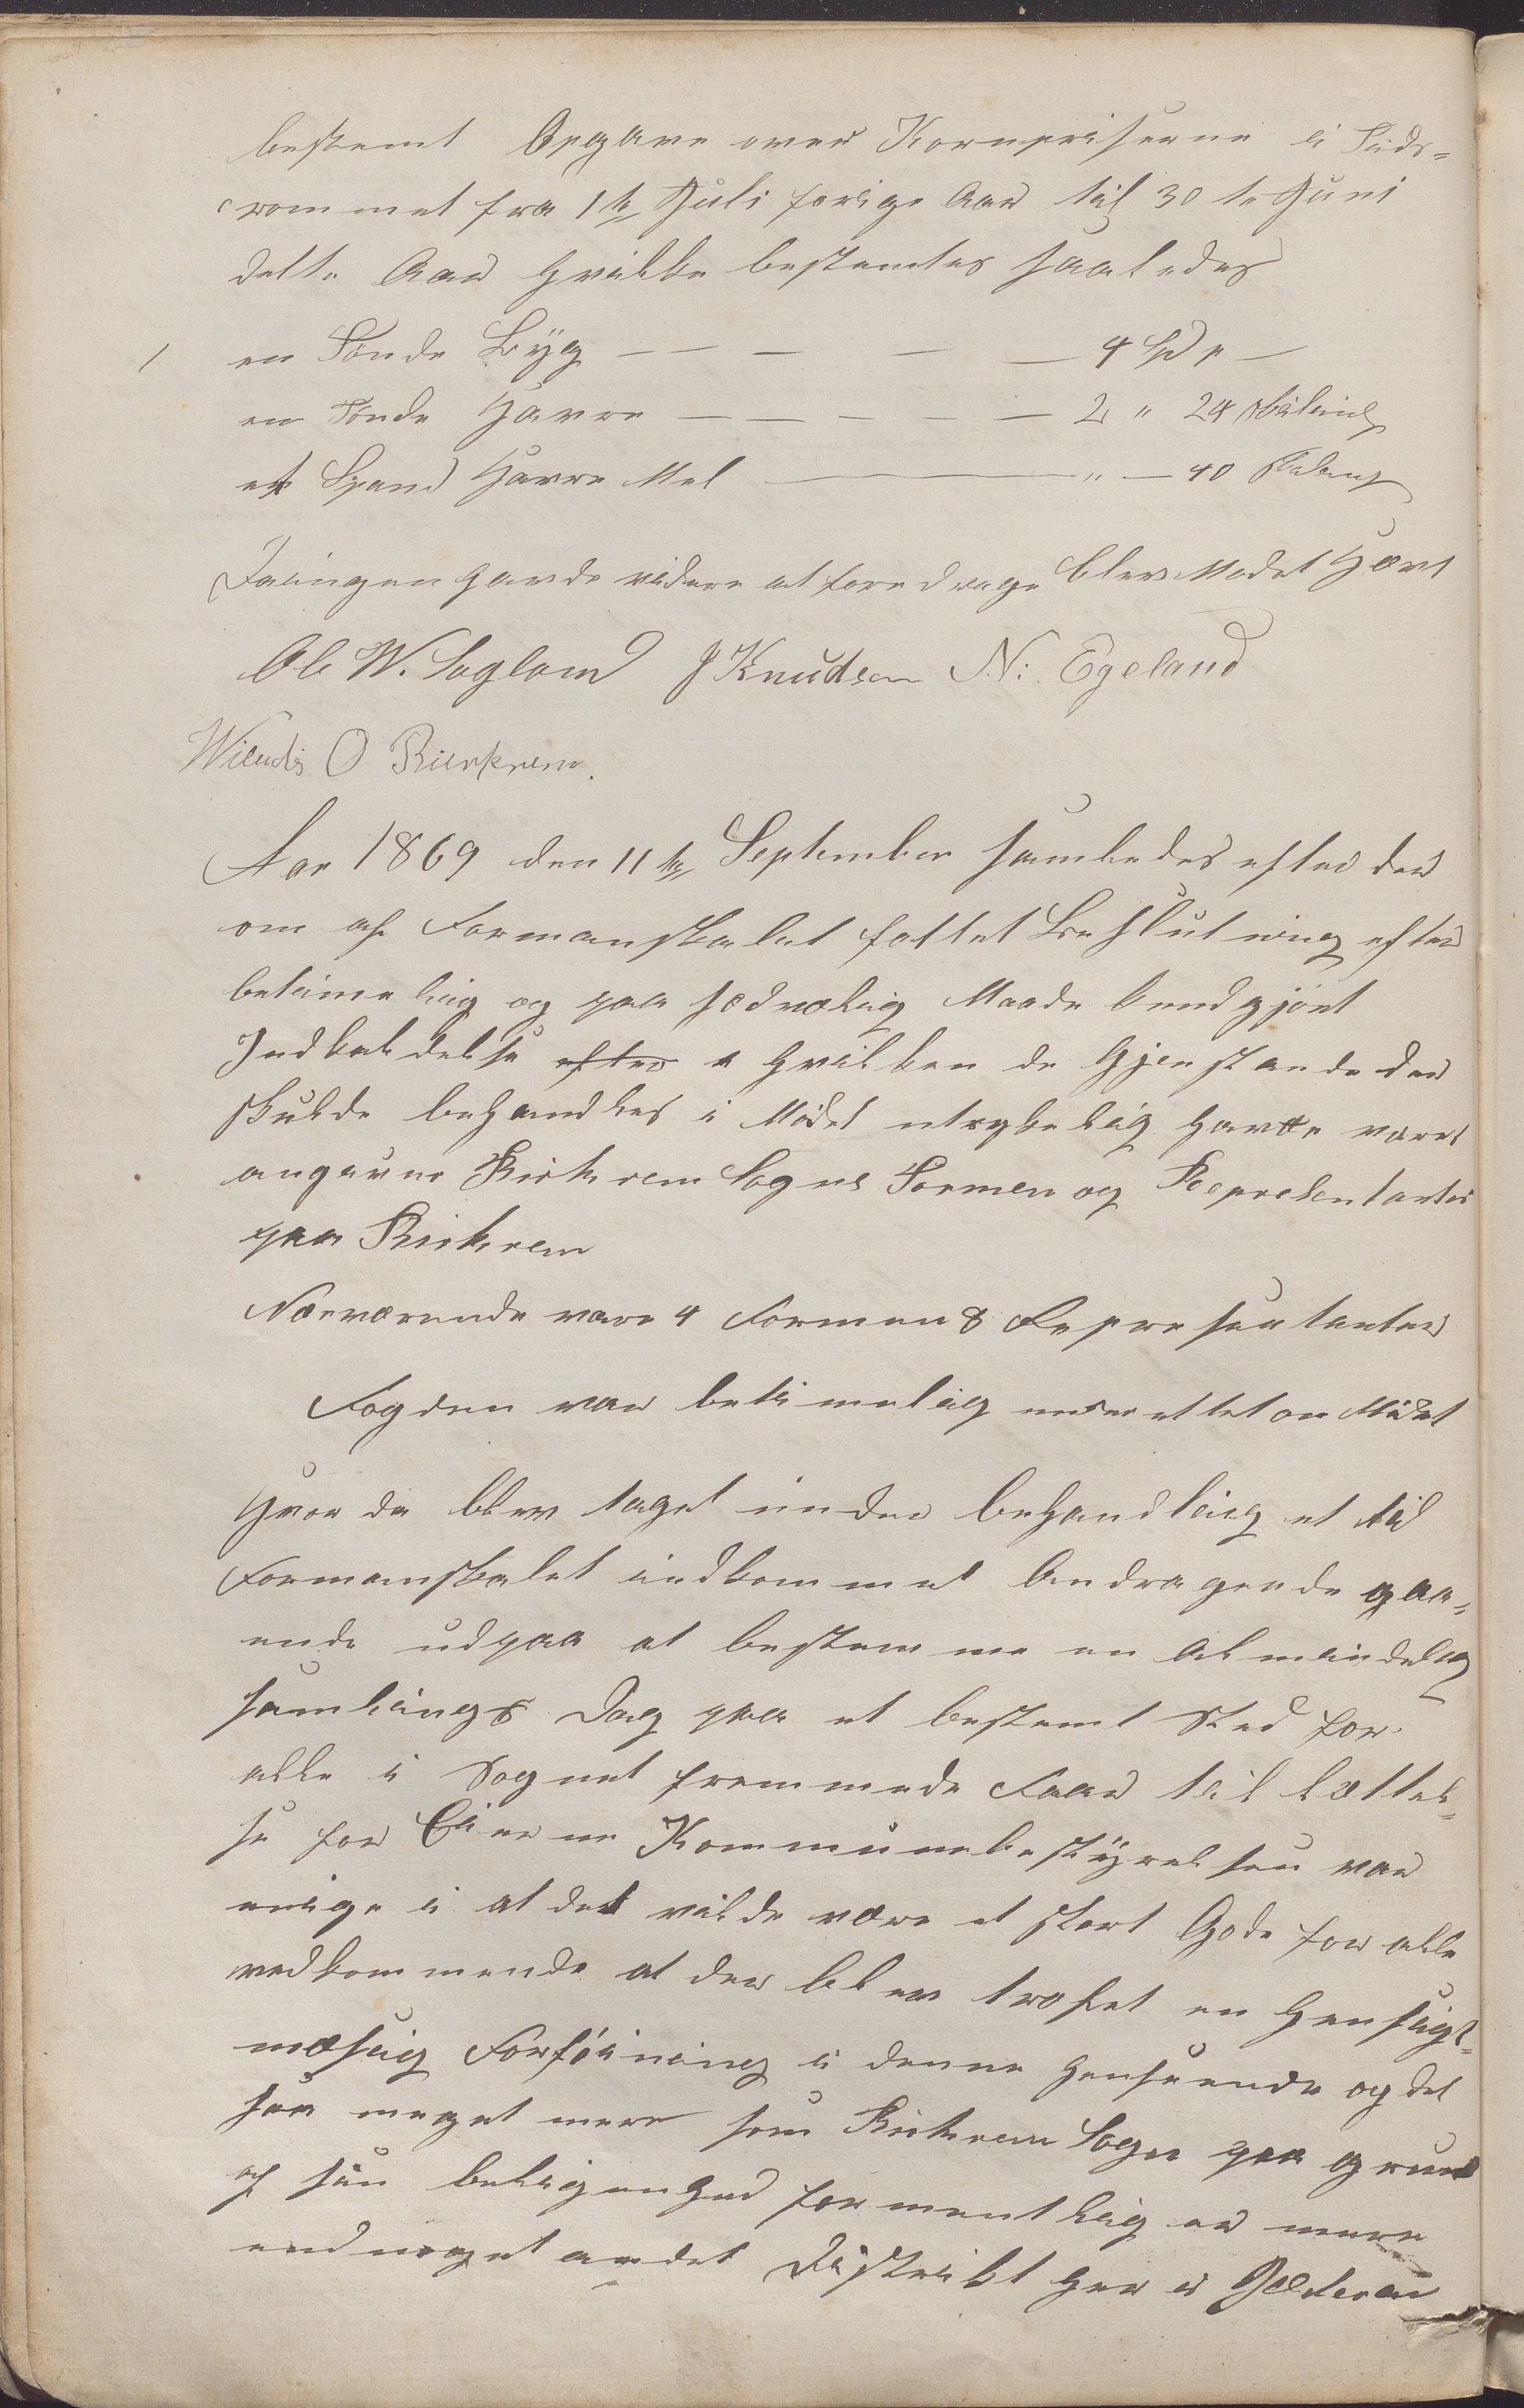 bestemt Opgave over Kornpriserne i Tids-
rommet fra 1te Juli forige Aar til 30te Juni
dette Aar Hvilke bestemtes saaledes
1 en Tønde Byg — — — — — 4 Spd " —
en Tønde Havre — — — — — 2 " 24 skiling
et Spand Havre Mel — — " — 40 skiling
Da ingen havde videre at foredrage blev Mødet Hævt
Ole W. Soglom J Knudsen N: Egeland
O Birkrem.
Aar 1869 den 11te September samledes efter der
om af Formanskabet fattet Beslutning efter
betimelig og paa sædvalig Maade kundgjort
Indkaldelse efter i Hvilken de Gjenstande der
skulde behandles i Mødet utrykelig havde været
angivne Birkrem Sogns Formen og Representanter
paa Birkrem
Nærværende vare 4 Formen 8 Representanter
Fogden var betimelig underettet om Mødet
Hvor da blev taget under behandling et til
Formanskabet indkommet Andragende gaa-
ende udpaa at bestemme en Almindelig
samlings Dag paa et bestemt Sted for
alle i Sognet fremmede Faar til Lættel-
se for Eierne Kommunebestyrelsen var
enige i at det vilde være et stort Gode for alle
vedkommende at der blev trofet en Hensigt-
mæsig Forføining i denne Henseende og det
saa meget mere som Birkrem Sogn paa grund
af sin beligenhed formentlig er mere
end noget andet Distrikt her i Jæderen